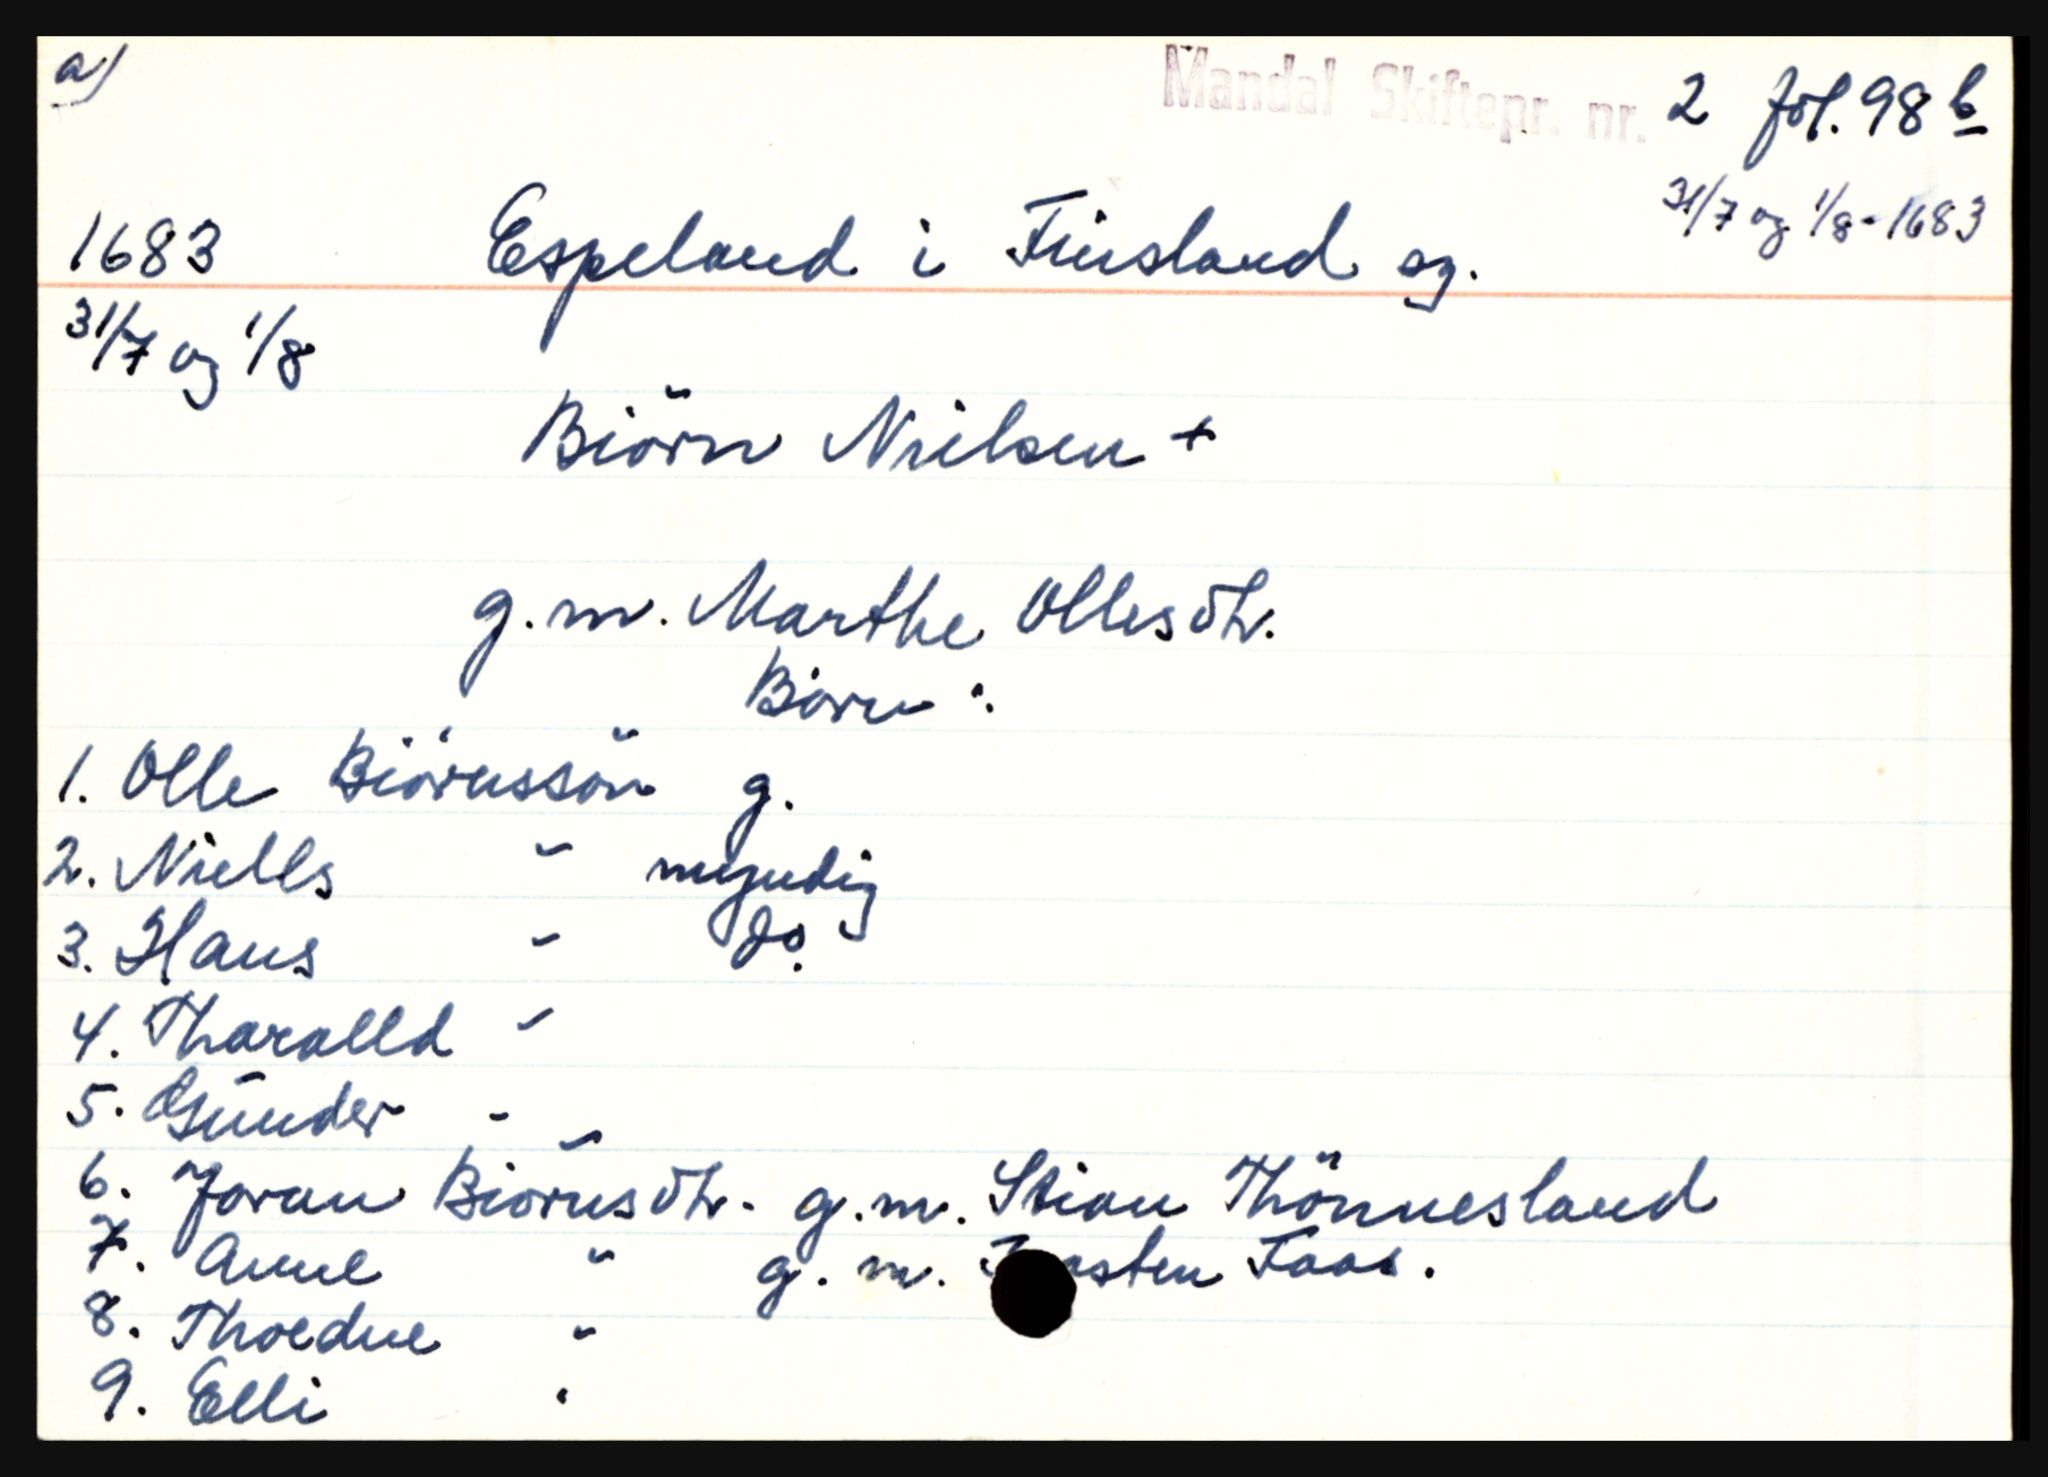 a)
Mandal Skiftepr. nr. 2 fol. 98 b
31/7 og 1/8 - 1683
1683 Espeland i Finsland sg.
31/7 og 1/8
Biörn Nielsen +
g. m. Marthe Ollesdtr.
Börn:
1. Olle Biörnssön g.
2. Niells " myndig
3. Hans " do.
4. Tharalld "
5. Gunder "
6. Joran Biörnsdtr. g. m. Stian Thönnesland
7. Anne " g. m. Faas.
8. Thoedne "
9. Elli "